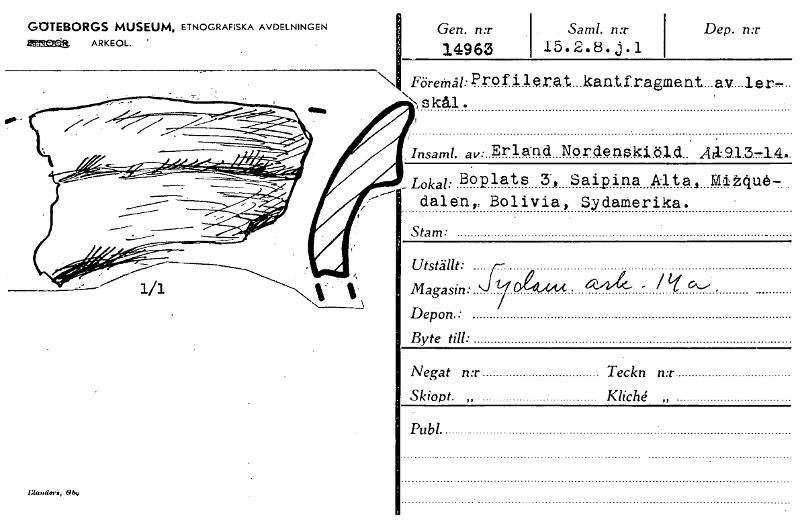 GÖTEBORGS MUSEUM, ETNOGRAFISKA AVDELNINGEN
ETNOGR. ARKEOL.
1/1
Elanders, Gbg
Gen. n:r Saml. n:r Dep. n:r
14963 15.2.8.j.1
Föremål: Profilerat kantfragment av ler-
skål.
Insaml. av: Erland Nordenskiöld År 1913-14.
Lokal: Boplats 3, Saipina Alta, Mizque-
dalen, Bolivia, Sydamerika.
Stam:
Utställt:
Magasin: Sydam. ark. 14a
Depon.:
Byte till:
Negat n:r Teckn n:r
Skiopt. „ Kliché „
Publ.